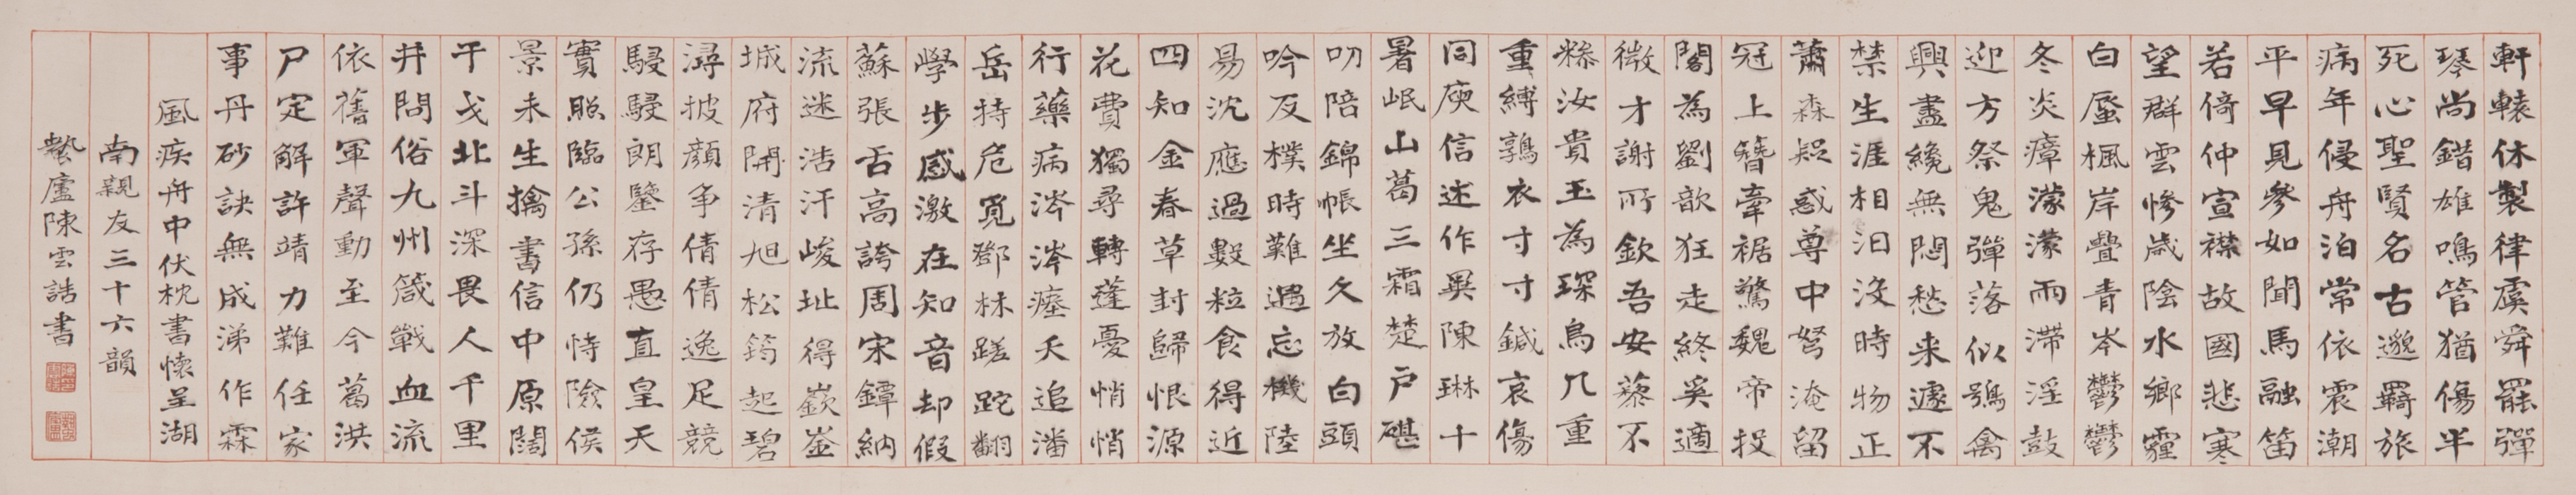 軒轅休製律虞舜罷彈
琴尚錯雄鳴管猶傷半
死心聖賢名古邈羇旅
病年侵舟泊常依震潮
平早見參如聞馬融笛
若倚仲宣襟故國悲寒
望群雲慘歲陰水鄉霾
白蜃楓岸疊青岑鬱鬱
冬炎瘴濛濛雨滯淫鼓
迎方祭鬼彈落似鴞禽
興盡纔無悶愁来遽不
禁生涯相汩沒時物正
蕭森疑惑尊中弩淹留
冠上簪牽裾驚魏帝投
閣為劉歆狂走終奚適
微才謝所欽吾安藜不
糝汝貴玉為琛烏几重
重縛鶉衣寸寸鍼哀傷
同庾信述作異陳琳十
暑岷山葛三霜楚戶碪
叨陪錦帳坐久放白頭
吟反樸時難遇忘機陸
易沈應過數粒食得近
四知金春草封歸恨源
花費獨尋轉蓬憂悄悄
行藥病涔涔瘞夭追潘
岳持危覓鄧林蹉跎翻
學步感激在知音却假
蘇張舌高誇周宋鐔納
流迷浩汗峻址得嶔崟
城府開清旭松筠起碧
潯披顏爭倩倩逸足競
駸駸朗鑒存愚直皇天
實照臨公孫仍恃險侯
景未生擒書信中原闊
干戈北斗深畏人千里
井問俗九州箴戰血流
依舊軍聲動至今葛洪
尸定解許靖力難任家
事丹砂訣無成涕作霖
風疾舟中伏枕書懷呈湖
南親友三十六韻
蟄廬陳雲誥書